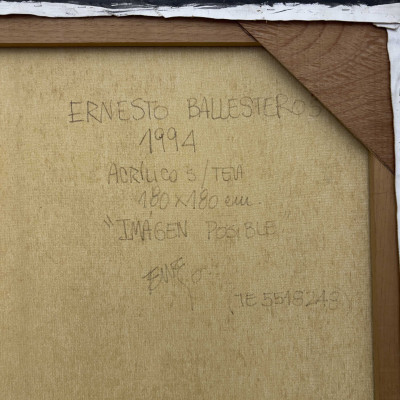 ERNESTO BALLESTEROS
1994
ACRÍLICO S/TELA
180x180 cm.
"IMÁGEN POSIBLE
TE 5518243